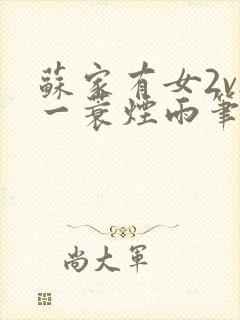 蘇家有女2v
一蓑煙雨筆
尚大軍